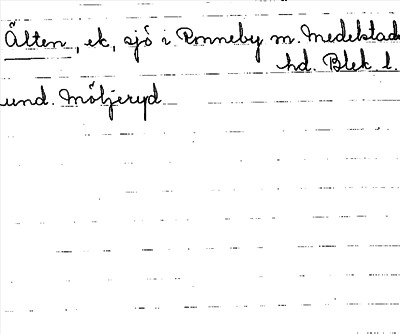 Ålten, ek, sjö i Ronneby m. Medelstads
hd. Blek. l.
und. Möljeryd